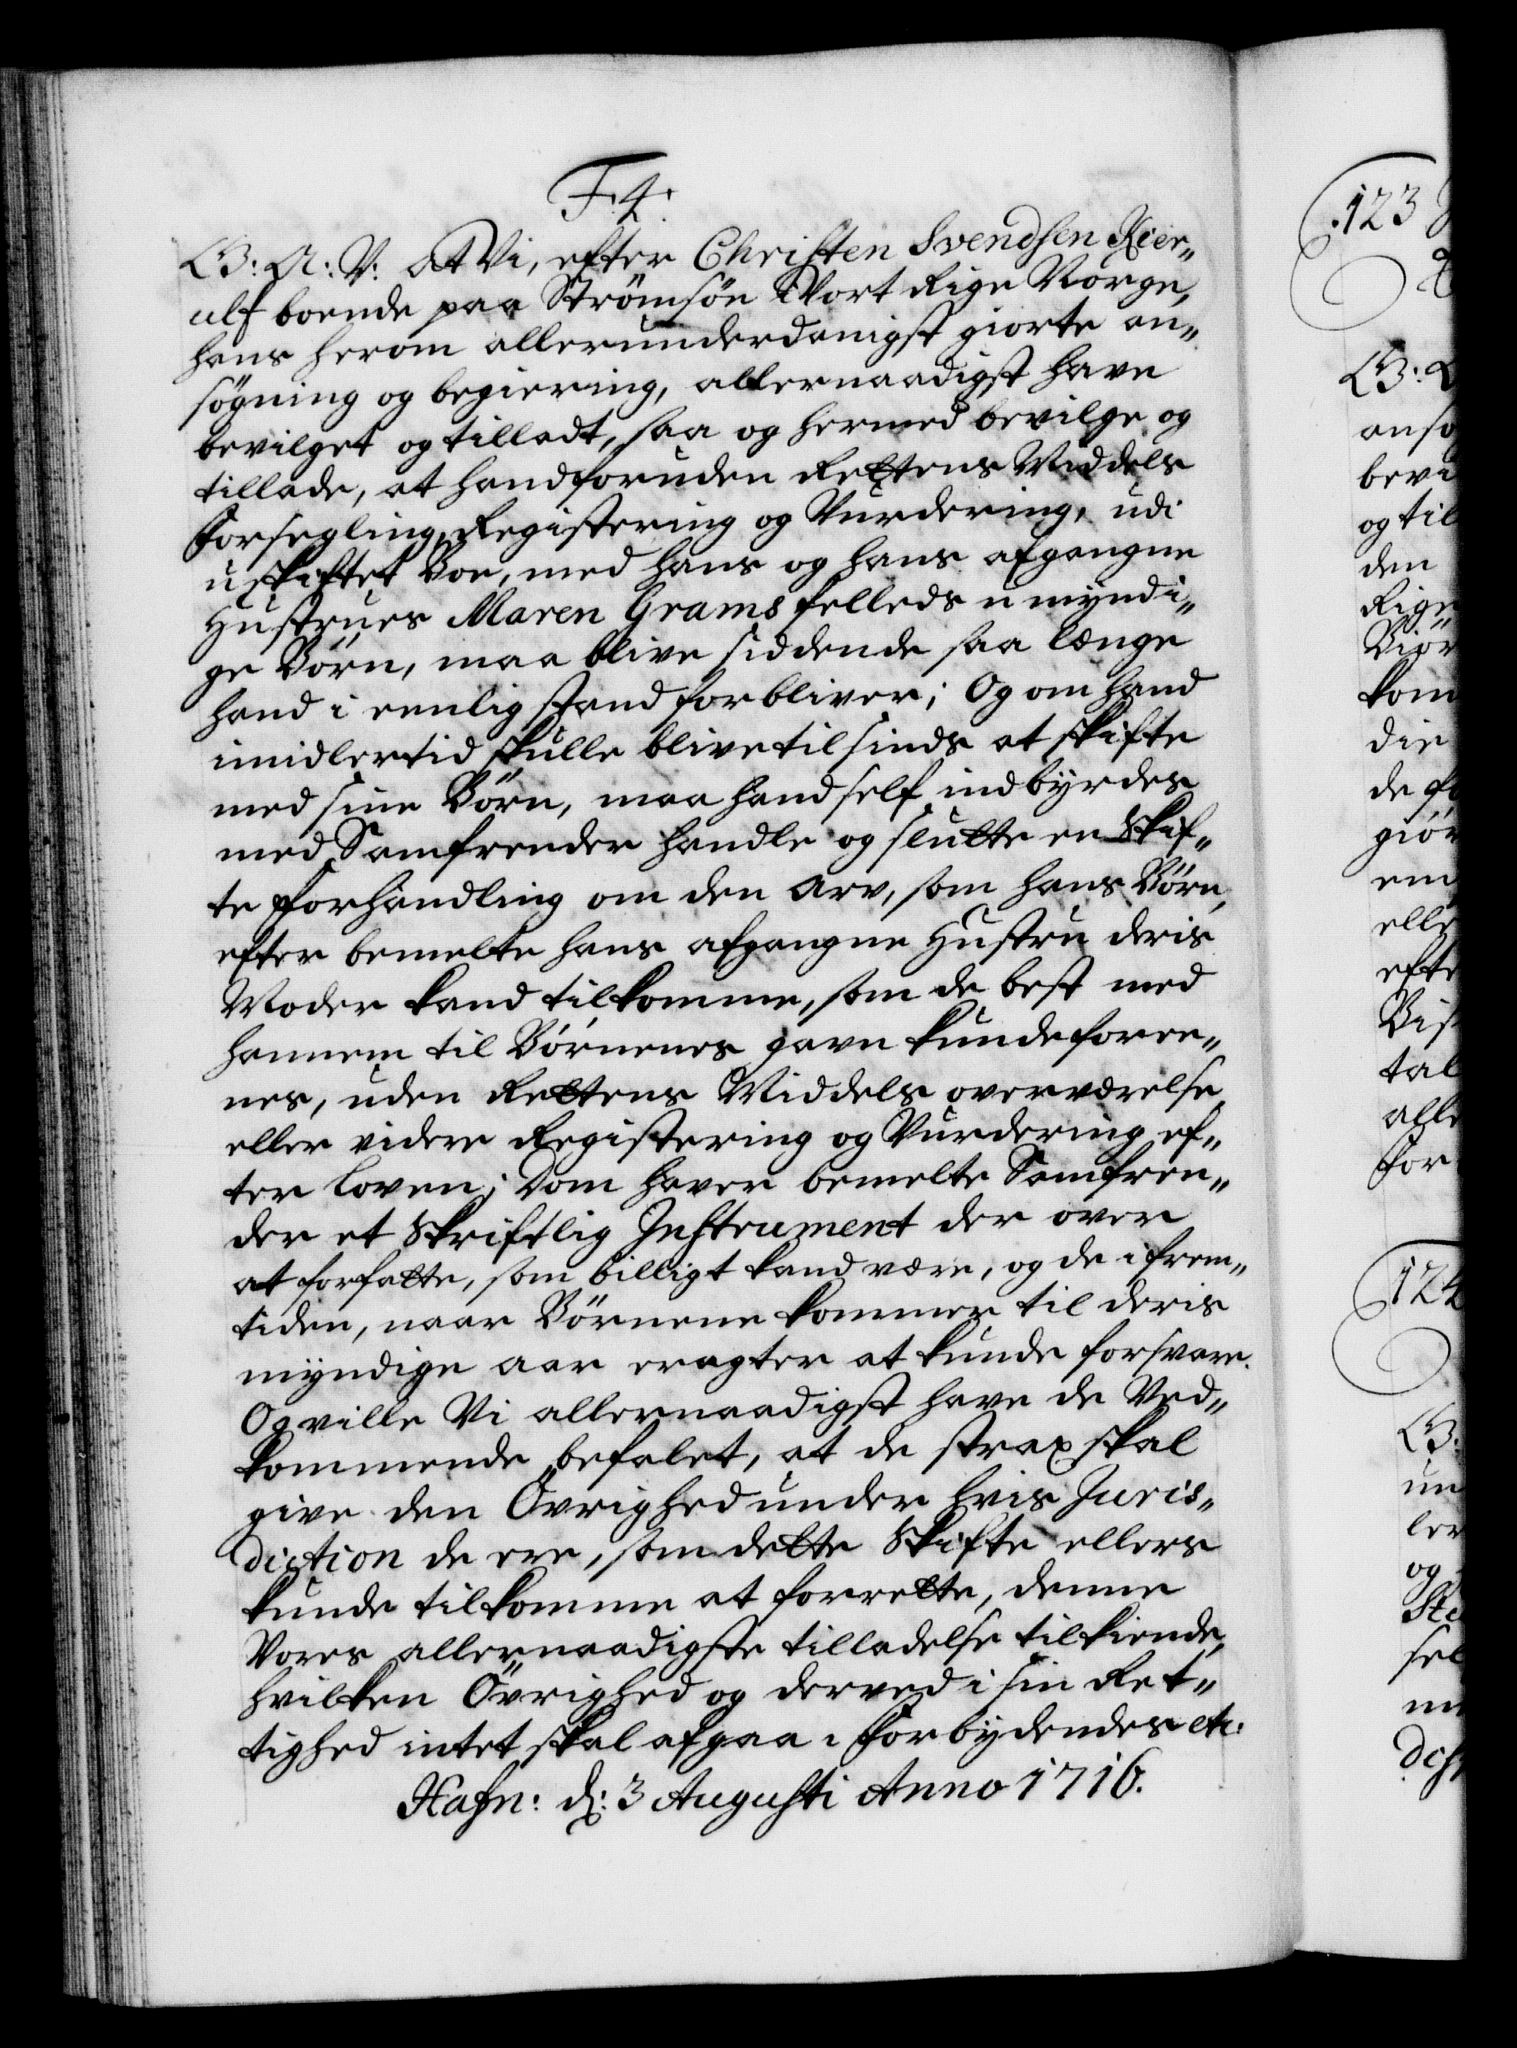 F. 4.
G: A: V: At Vi, efter Christen Svendsen Kier„
ulf boende paa Strömsöe i Vort Rige Norge,
hans herom allerunderdanigst giorte an„
søgning og begiering, allernaadigst have
bevilget og tilladt, saa og hermed bevilge og
tillade, at hand foruden Rettens Middels
Forsegling, Registering og Vurdering, udi
uskiftet Boe, med hans og hans afgangne
Hustrues Maren Grams felleds u myndi„
ge Börn, maa blive siddende saa længe
hand i eenlig stand forbliver; Og om hand
imidlertid skulle blive til sinds at skifte
med sine Börn, maa hand self indbyrdes
med Samfrender handle og slutte en Skif„
te Forhandling om den Arv, som hans Börn,
efter bemelte hans afgangne Hustru deris
Moder kand tilkomme, som de best med
hannem til Börnenes gavn kunde foree„
nes, uden Rettens Middels overværelse
eller videre Registering og Vurdering ef„
ter Loven; Dom haver bemelte Samfren„
der et Skriftlig Instrument der over
at forfatte, som billigt kand være, og de i frem„
tiden, naar Börnene kommer til deris
myndige aar eragter at kunde forsvare.
Og ville Vi allernaadigst have de Ved„
kommende befalet, at de strax skal
give den Övrighed under hvis Juris„
diction de ere, som dette Skifte ellers
kunde tilkomme at forrette, denne
Vores allernaadigste tilladelse tilkiende,
hvilken Övrighed og derved i sin Ret„
tighed intet skal afgaa. Forbydendes etc:
Hafn: d: 3 Augusti Anno 1716.
123
G:
anso
bevi
og til
den
Rige
Biör
kom
die
de fo
giör
em
elle
efte
Bis
tal
alle
for
124
G:
un
ler
og
Ste
sel